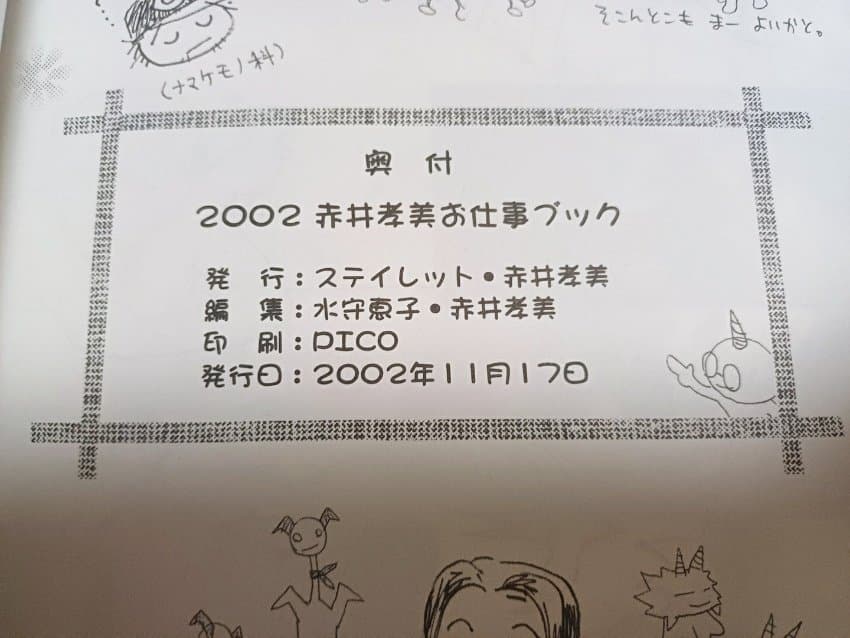 そこんとこも まー よいかと。
(ナマケモノ科)
奥 付
2002 赤井孝美お仕事ブック
発 行：ステイレット・赤井孝美
編 集：水守恵子・赤井孝美
印 刷：PICO
発行日：2002年11月17日